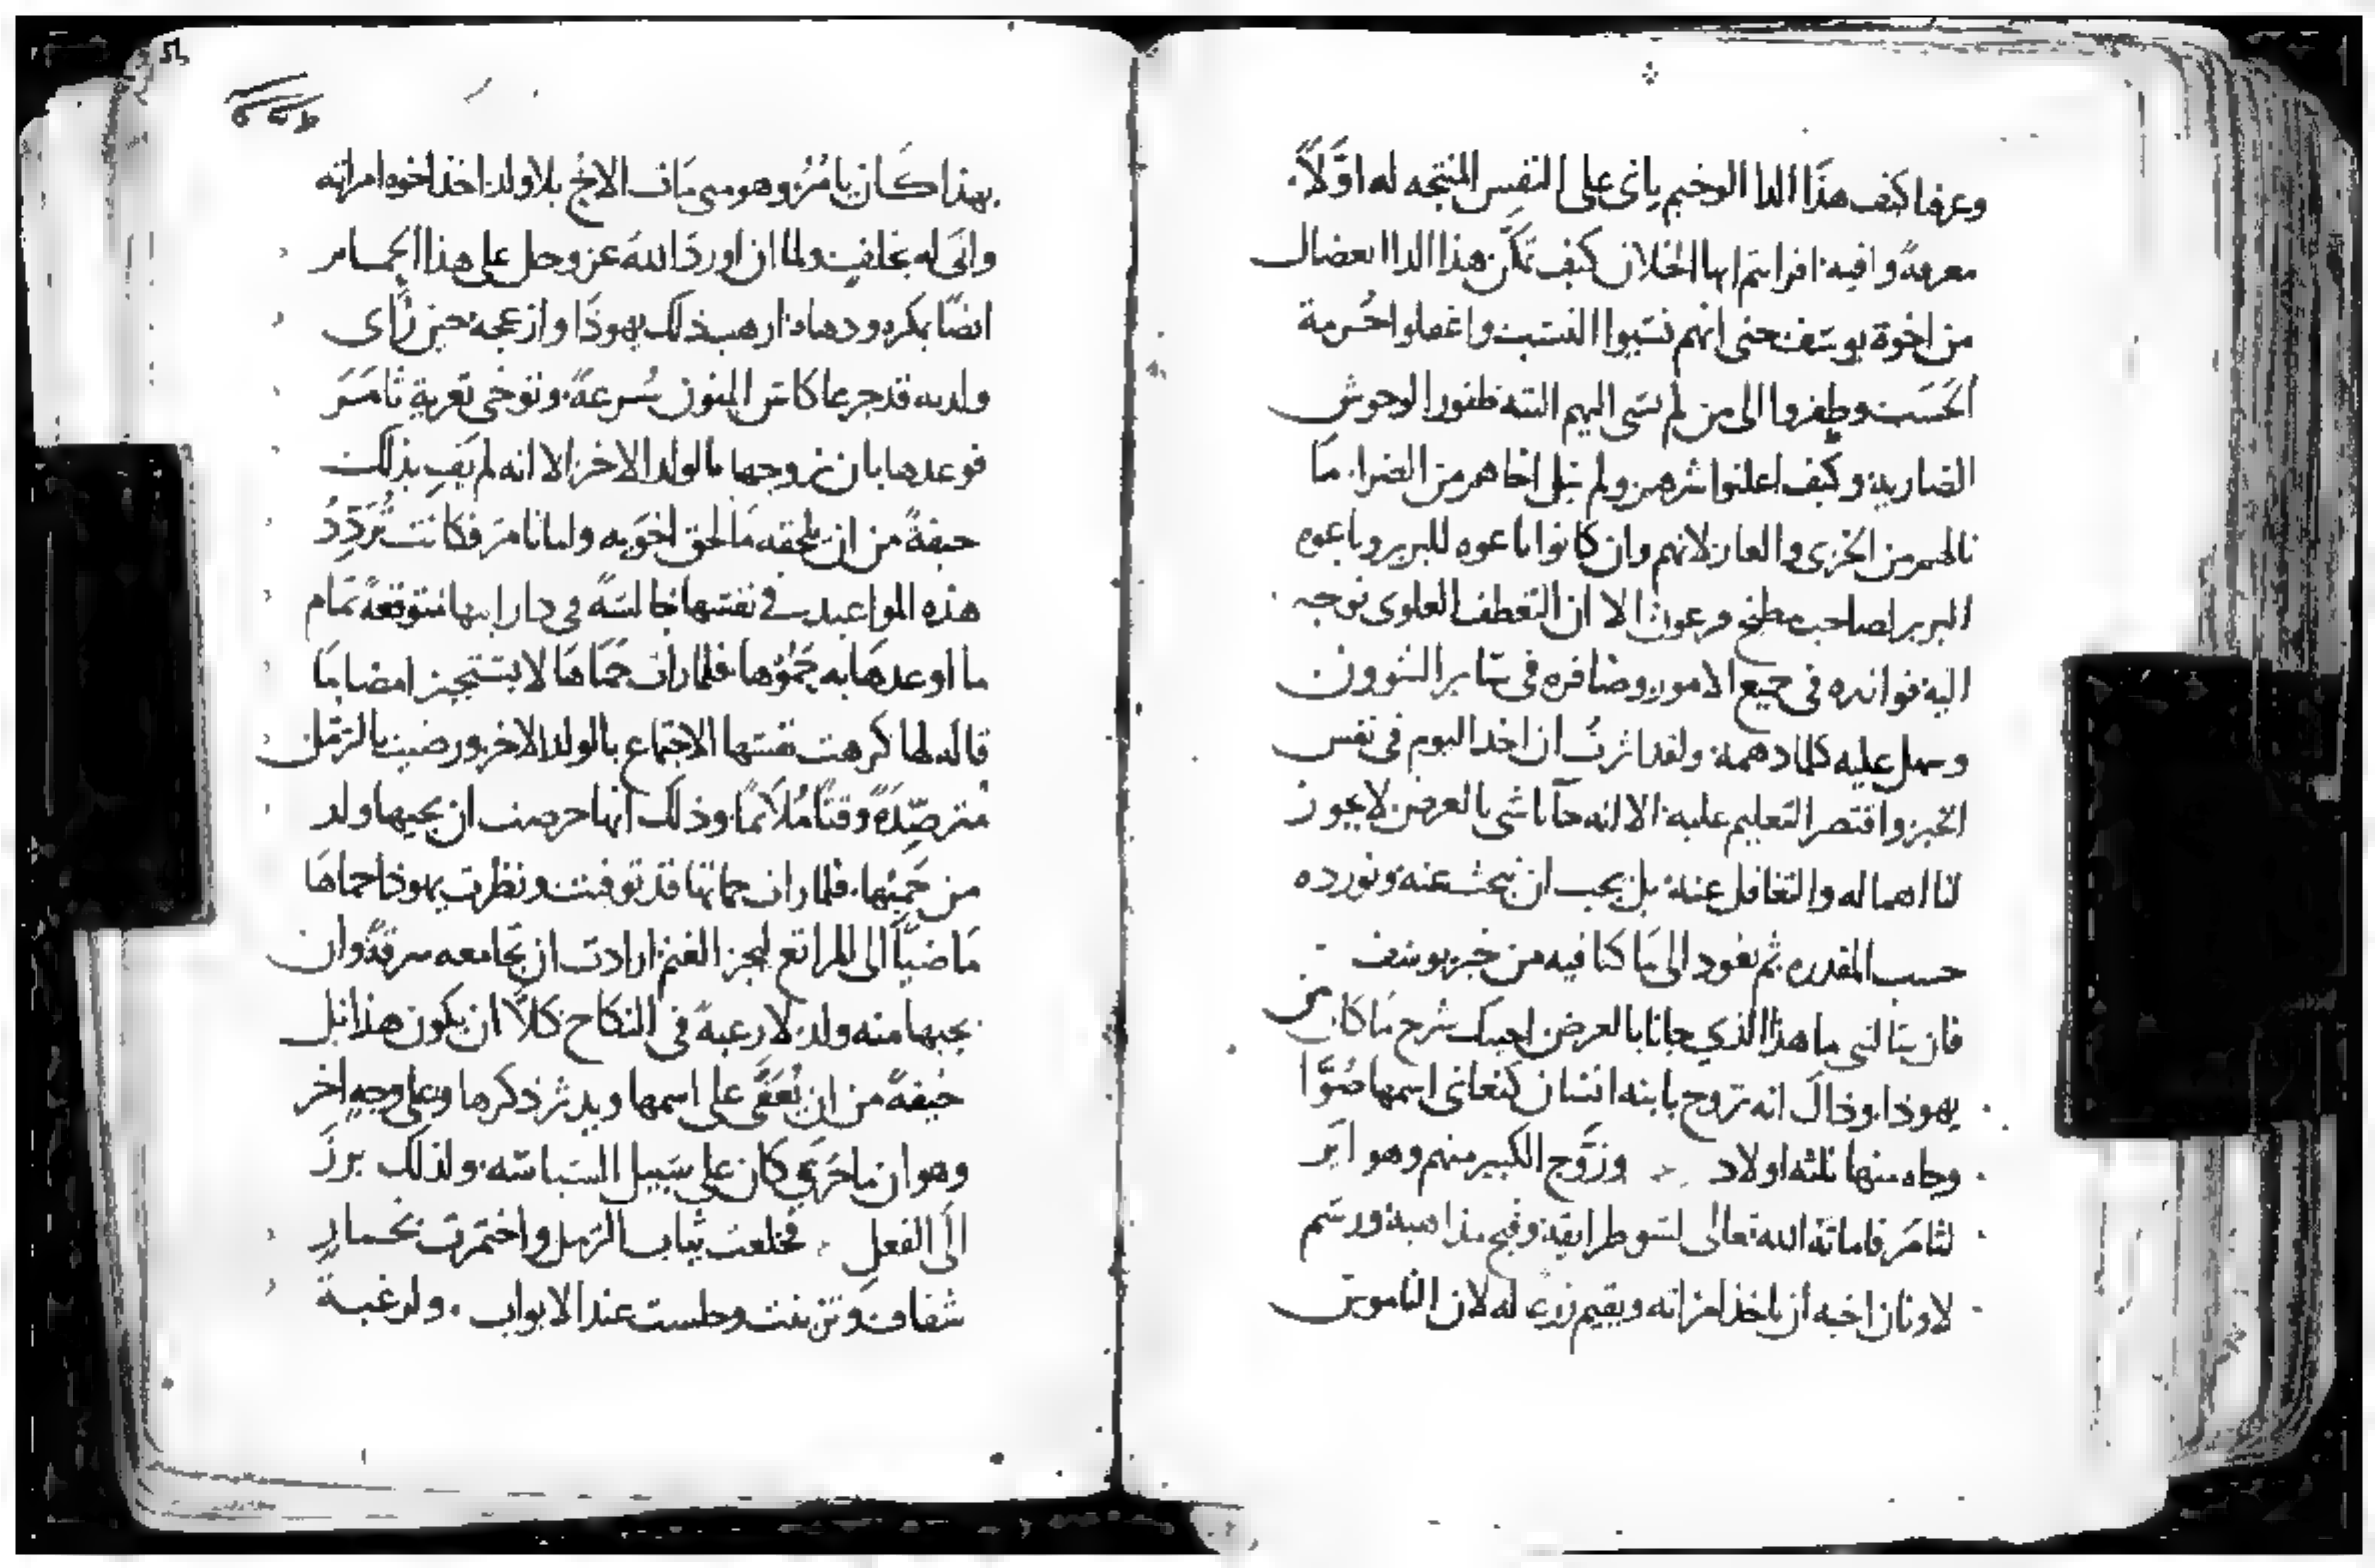 وعرفا كيف هذا الدا الوخيم ياتى على النفس المنتجه له اوّلاً.
معرفةً وافيه افرايتم ايها الخلان كيف تمكّن هذا الدا العضال
من اخوة يوسف حتى انهم نسبوا النسب واغفلوا حُرمة
الحَسَب وطفروا الى من لم يسى اليهم البتة طفور الوحوش
الضاريه وكيف اعلنوا شرهم ولم ينل اخاهم من الضرا ما
نالهم من الخزى والعار لانهم وان كانوا باعوه للبربر وباعوه
البربر لصاحب مطبخ فرعون الا ان التعطف العلوى توجه
اليه فوائده فى جميع الامور وضافره فى ساير الشوون
وسهل عليه كلما دهمه ولقد اثرتُ ان اخذ اليوم فى نفس
الخبر واقتصر التعليم عليه الا انه جآنا شى بالعرض لا يجوز
لنا اهماله والتغافل عنه بل يجب ان نبحث عنه ونورده
حسب المقدره ثم نعود الى ما كنا فيه من خبر يوسف
فان سالتنى ما هذا الذي جانا بالعرض اجبتك شرح ما كان من
يهوذا وذاك انه تزوج بابنه انسان كنعانى اسمها صُوَّا
وجاه منها ثلثه اولاد وزوَّج الكبير منهم وهو اير
لثامَر فاماته الله تعالى لسو طرايقه وقبح مذاهبه ورسم
لاونان اخيه أن ياخذ امراته ويقيم زرعا له لان الناموس
بهذا كان يامُرُ وهو متى مات الاخ بلا ولد اخذ اخوه امراته
واتى له بخلف ولما ان اورد الله عز وجل على هذا الحمام
ايضًا بمكره ودهاه ارهب ذلك يهوذا وازعجه حين رأى
ولديه قد جرعا كاس المنون سُرعةً وتوخى تعزية ثامَر
فوعدها بان يزوجها بالولد الاخر الا انه لم يَفِ بذلك
خيفةً من ان يلحقه ما لحق اخوَيه واما ثامر فكانت تُرَدِّدُ
هذه المواعيد في نفسها جالسَةً فى دار ابيها متوقعةً تمام
ما اوعدها به حَمُوها فلما رات حَمَاها لا يستنجز امضا ما
قاله لها كرهت نفسها الاجتماع بالولد الاخر ورضيت بالترمل
مترصّدَةً وقتًا مُلآئمًا وذلك انها حرصت ان يجيها ولد
من حَمِيْها. فلما رات حماتها قد توفيت ونظرت يهوذا حماها
ماضيًا الى المراتع ليجز الغنم ارادت ان تجامعه سرقةً وان
يجيها منه ولد لا رغبةً فى النكاح كلاّ ان يكون هذا بل
خيفةً من ان يُعَفَّى على اسمها ويدثر ذكرها وعلى وجهٍ اخر
وهو ان ما جَرَى كان على سَبيل السياسه ولذلك برزَ
الَى الفعل فخلعت ثياب الترمل واختمرت بخمارٍ
شفاف وتزينت وجلست عند الابواب. ولرغبة